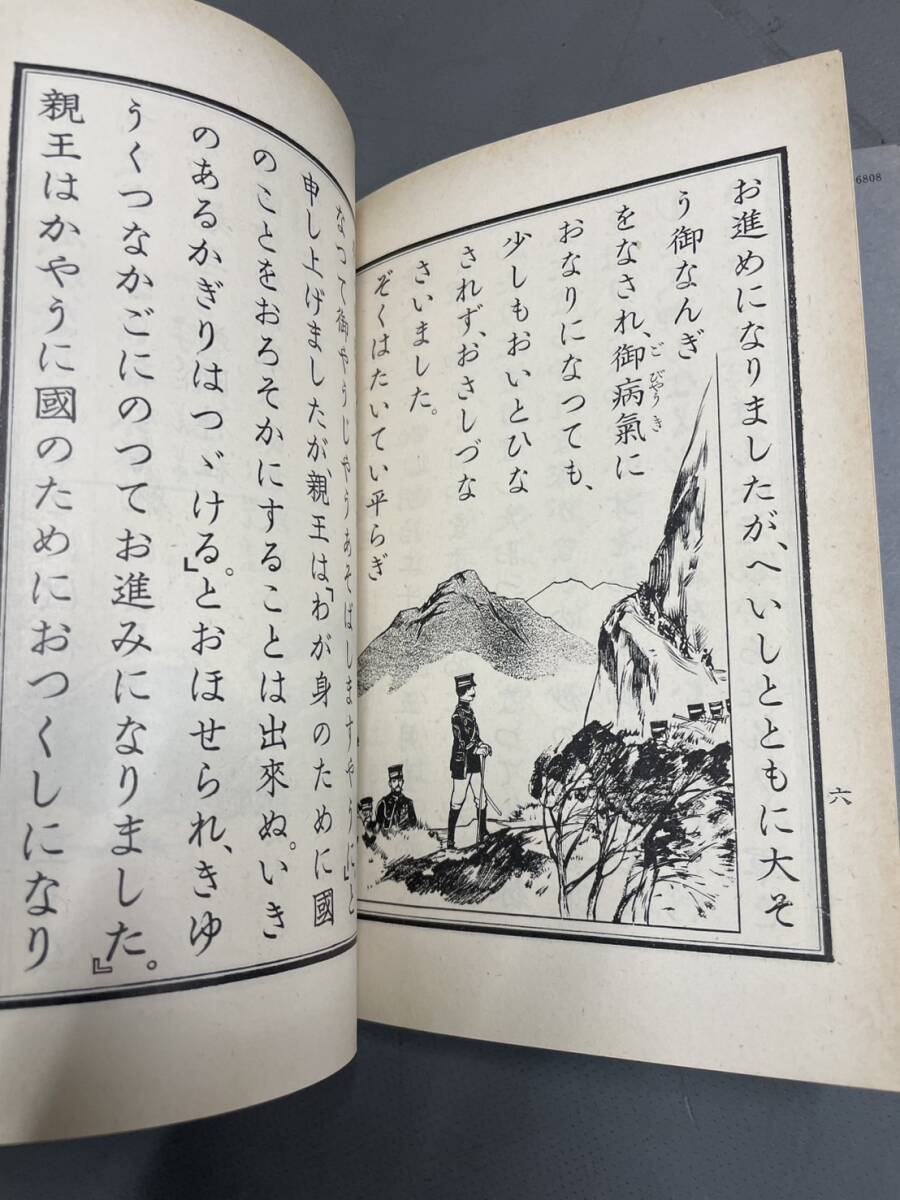 お進めになりましたが、へいしとともに大そ
う御なんぎ
をなされ、御病氣に
ごびやうき
おなりになつても、
少しもおいとひな
されず、おさしづな
さいました。
ぞくはたいてい平らぎ
六
6808
なつて御やうじやうあそばしますやうに」と
申し上げましたが、親王は「わが身のために國
のことをおろそかにすることは出來ぬ。いき
のあるかぎりはつゞける。」とおほせられ、きゆ
うくつなかごにのつてお進みになりました。』
親王はかやうに國のためにおつくしになり